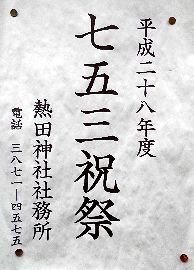 平成二十八年度
七五三祝祭
熱田神社社務所
電話 三八七一―四五七五